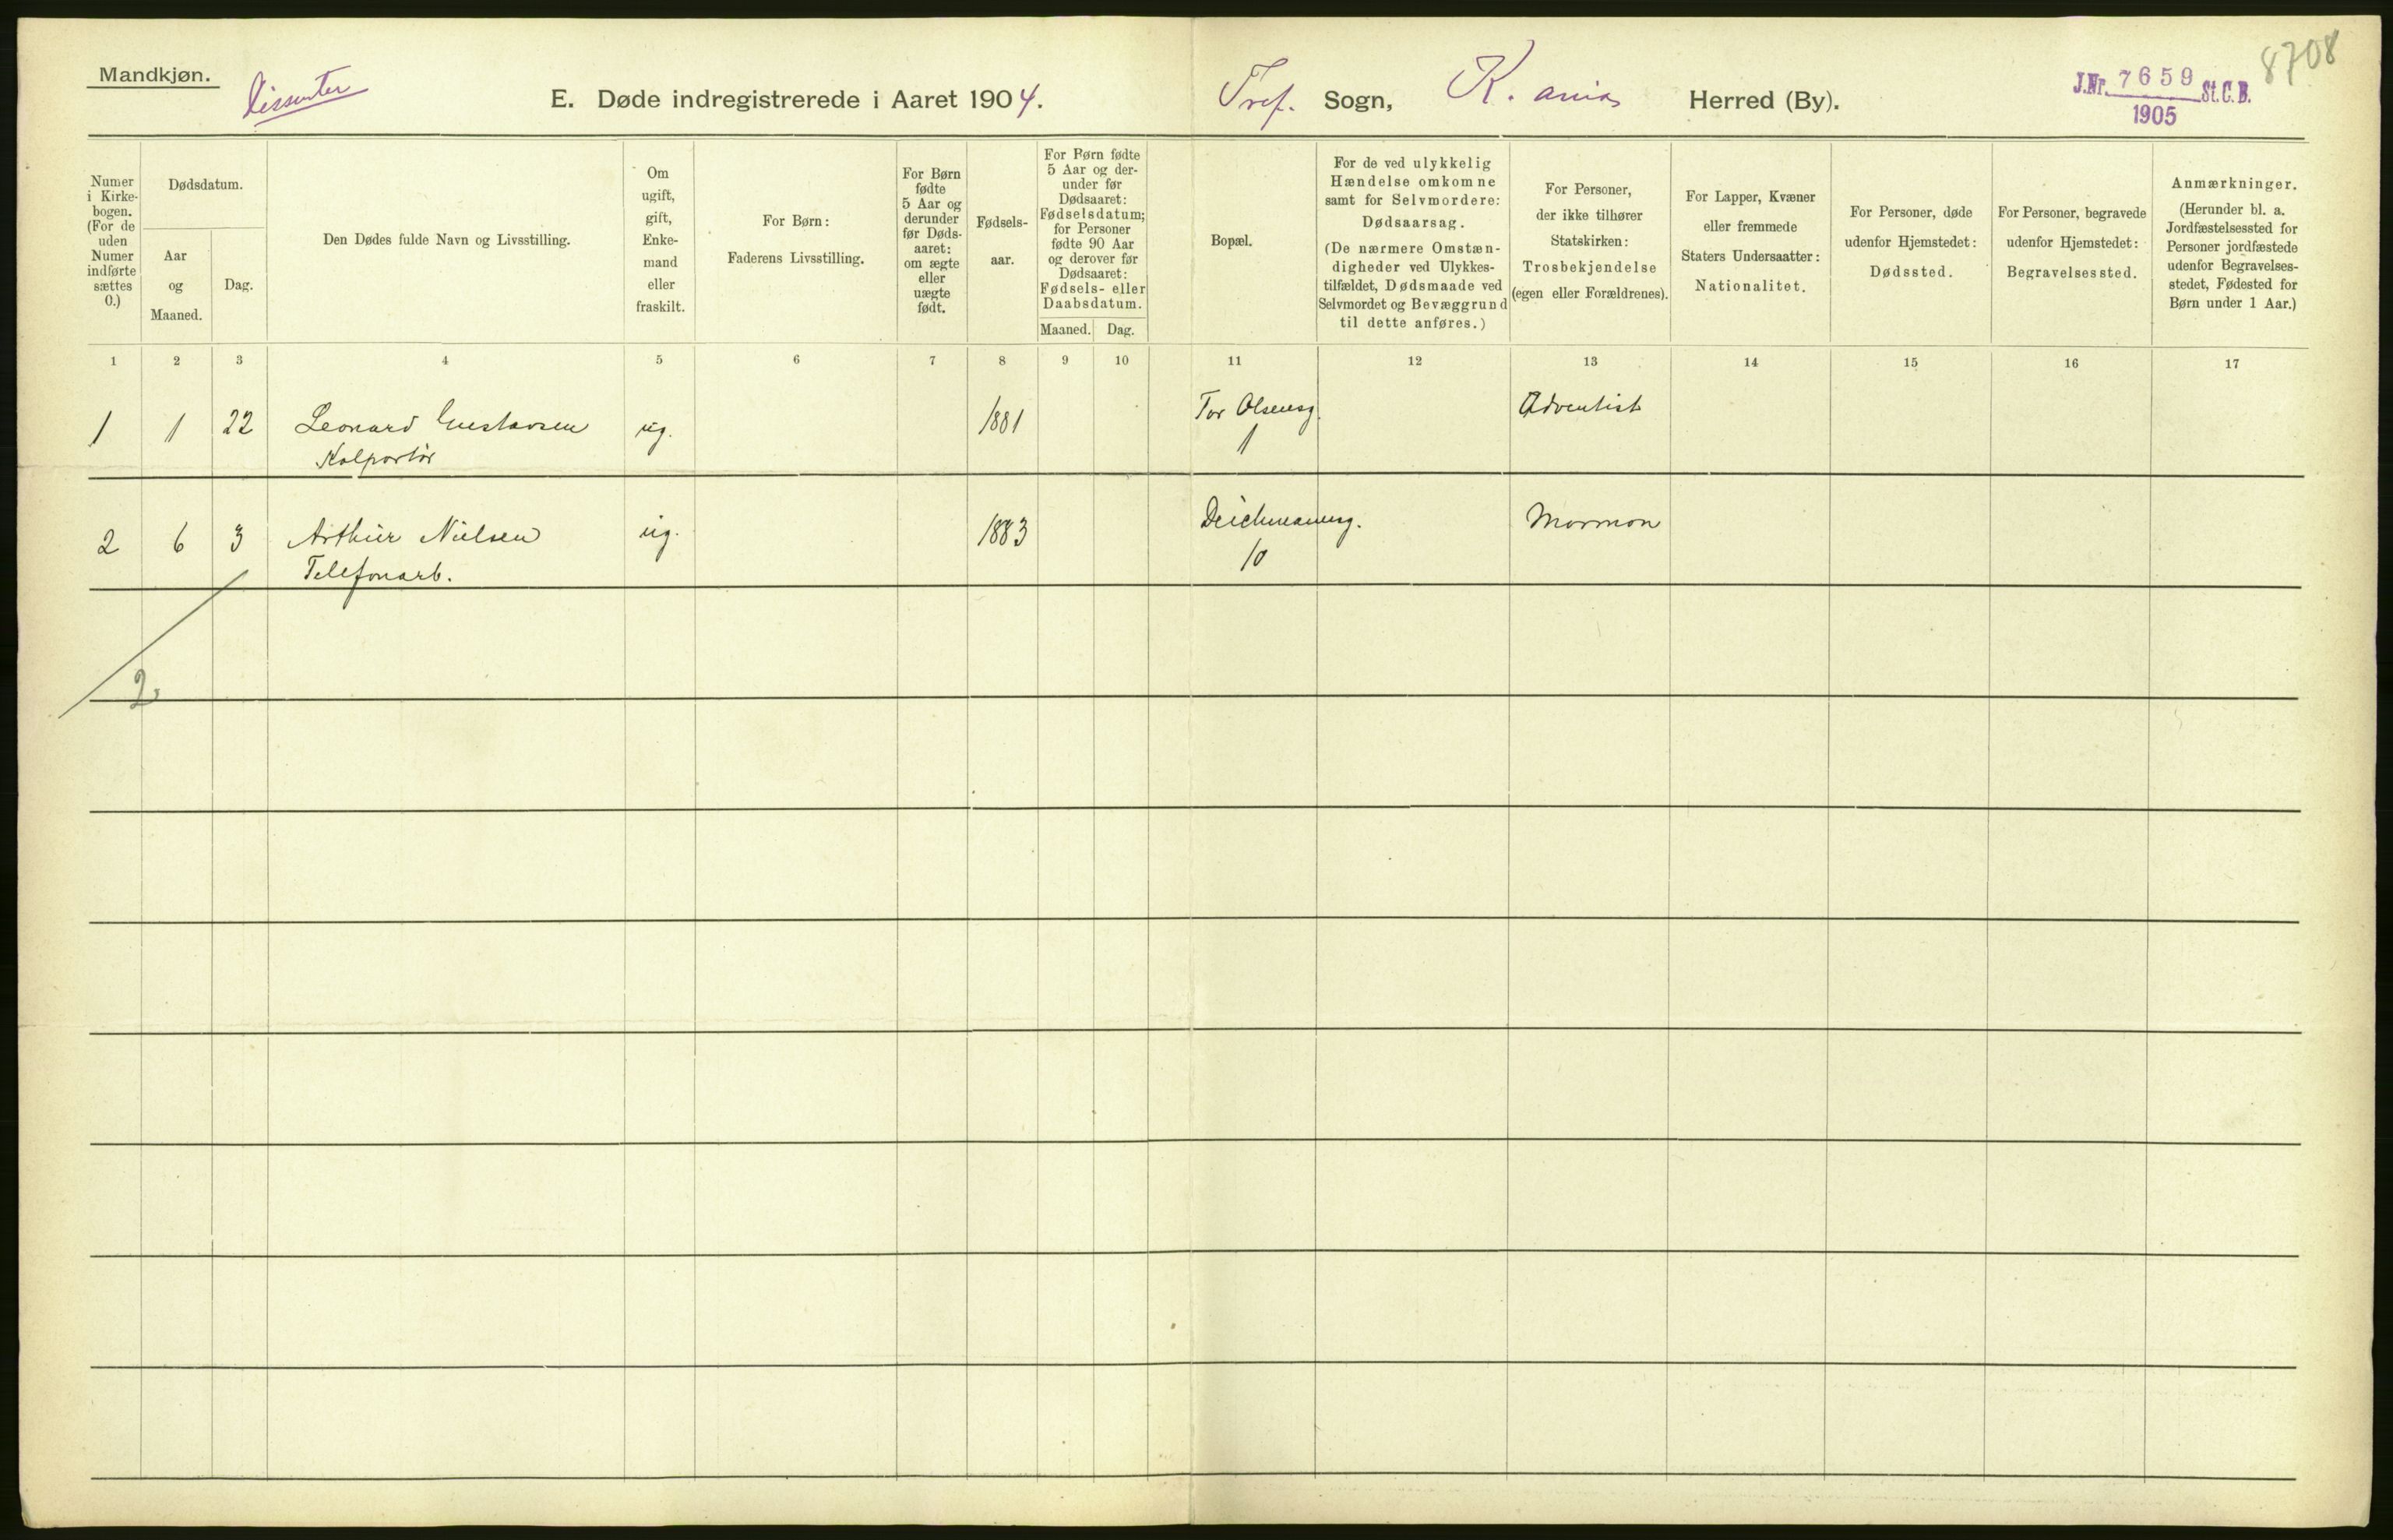 Mandkjøn.
Dissenter
E. Døde indregistrerede i Aaret 1904.
Tref. Sogn, K.ania Herred (By).
J.Nr. 7659 St.C.B.
1905
8708
Numer i Kirkebogen. (For de uden Numer indførte sættes 0.)
Dødsdatum.
Aar og Maaned.
Dag.
Den Dødes fulde Navn og Livsstilling.
Om ugift, gift, Enkemand eller fraskilt.
For Børn:
Faderens Livsstilling.
For Børn fødte 5 Aar og derunder før Dødsaaret: om ægte eller uægte født.
Fødselsaar.
For Børn fødte 5 Aar og derunder før Dødsaaret: Fødselsdatum; for Personer fødte 90 Aar og derover før Dødsaaret: Fødsels- eller Daabsdatum.
Maaned. Dag.
Bopæl.
For de ved ulykkelig Hændelse omkomne samt for Selvmordere: Dødsaarsag.
(De nærmere Omstændigheder ved Ulykkestilfældet, Dødsmaade ved Selvmordet og Bevæggrund til dette anføres.)
For Personer, der ikke tilhører Statskirken: Trosbekjendelse (egen eller Forældrenes).
For Lapper, Kvæner eller fremmede Staters Undersaatter: Nationalitet.
For Personer, døde udenfor Hjemstedet: Dødssted.
For Personer, begravede udenfor Hjemstedet: Begravelsessted.
Anmærkninger.
(Herunder bl. a. Jordfæstelsessted for Personer jordfæstede udenfor Begravelsesstedet, Fødested for Børn under 1 Aar.)
1 2 3 4 5 6 7 8 9 10 11 12 13 14 15 16 17
1 1 22 Leonard Gustavsen ug. 1881 Tor Olsensg. Adventist
Kolportør 1
2 6 3 Arthur Nielsen ug. 1883 Deichmansg. Mormon
Telefonarb. 10
2